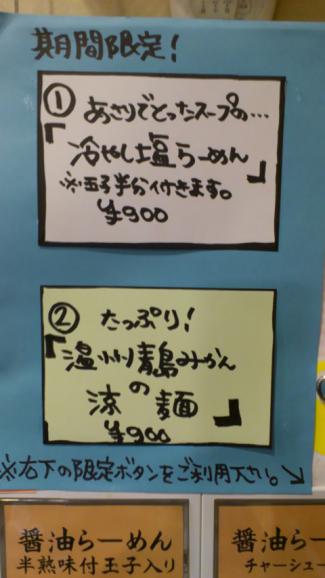 期間限定!
① あさりでとったスープの…
『冷やし塩らーめん』
※玉子半分付きます。
¥900
② たっぷり!
『温州青島みかん
の
涼麺』
¥900
※右下の限定ボタンをご利用下さい。↘
醤油らーめん
半熟味付玉子入り
醤油らー
チャーシュー